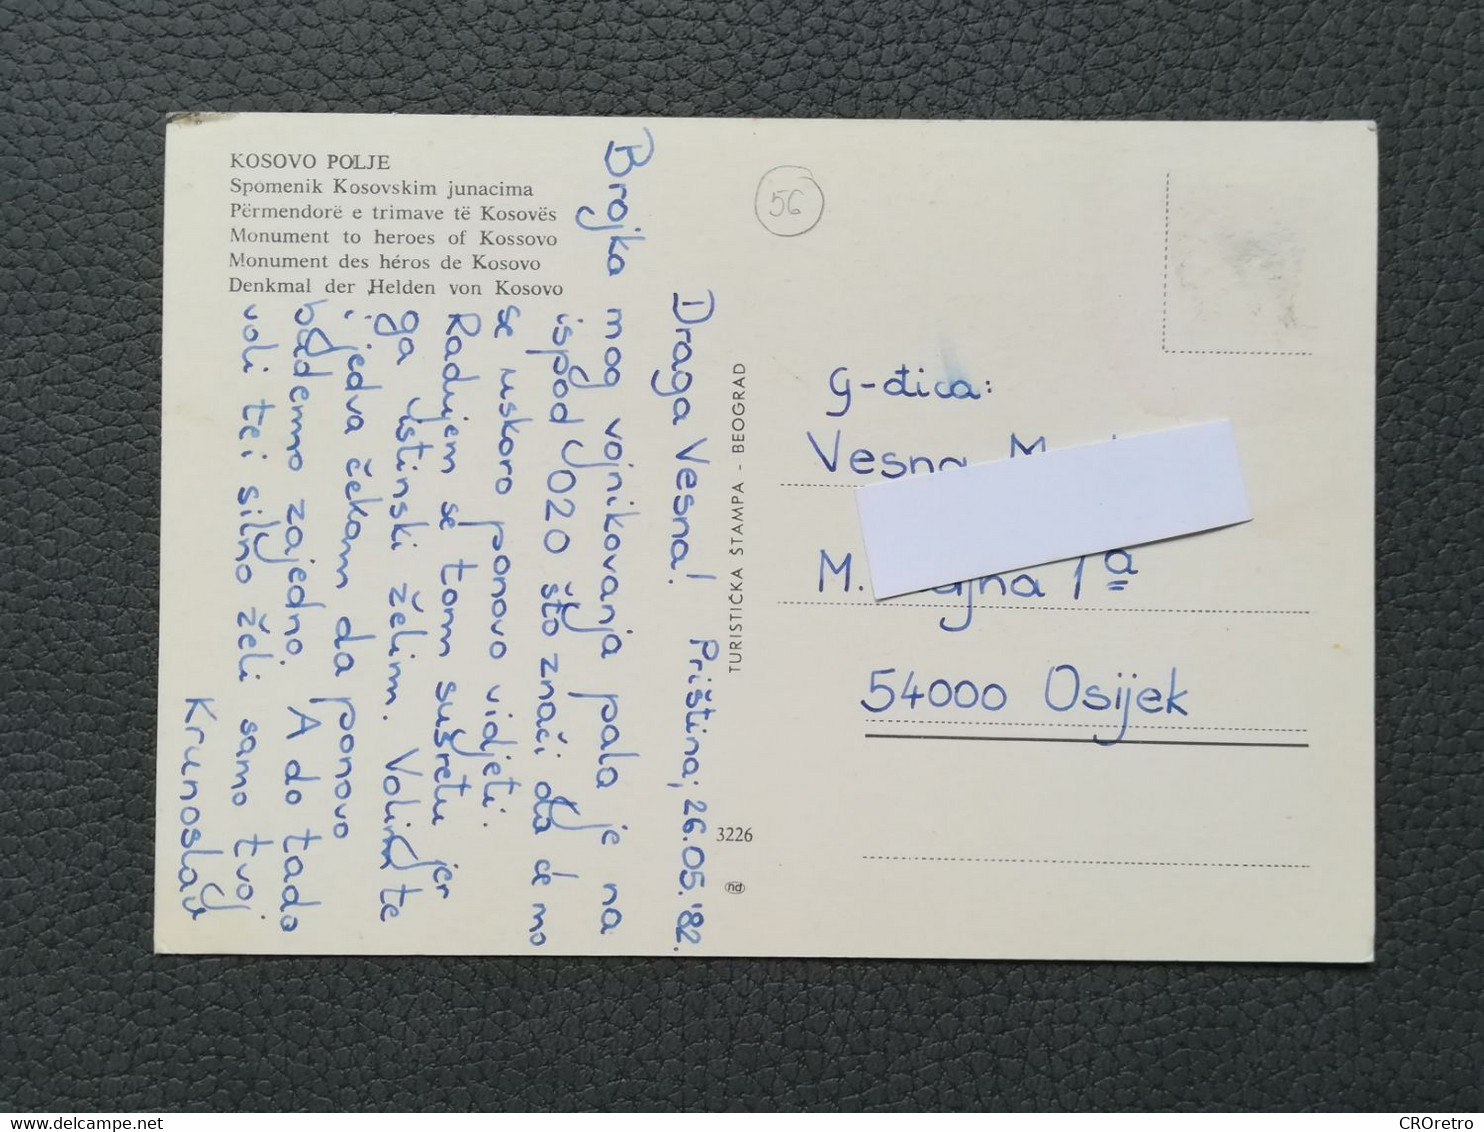 KOSOVO POLJE
Spomenik Kosovskim junacima
Përmendorë e trimave të Kosovës
Monument to heroes of Kossovo
Monument des héros de Kosovo
Denkmal der Helden von Kosovo
Priština, 26.05.'82.
Draga Vesna!
Brojka mog vojnikovanja pala je na
ispod 020 što znači da će mo
se uskoro ponovo vidjeti.
Radujem se tom sušretu jer
ga istinski želim. Volim te
i jedva čekam da ponovo
budemo zajedno. A do tada
voli te i silno želi samo tvoj
Krunoslav
TURISTIČKA ŠTAMPA - BEOGRAD
3226
nd
56
G-đica:
Vesna M
M. 1a
54000 Osijek
CROretro